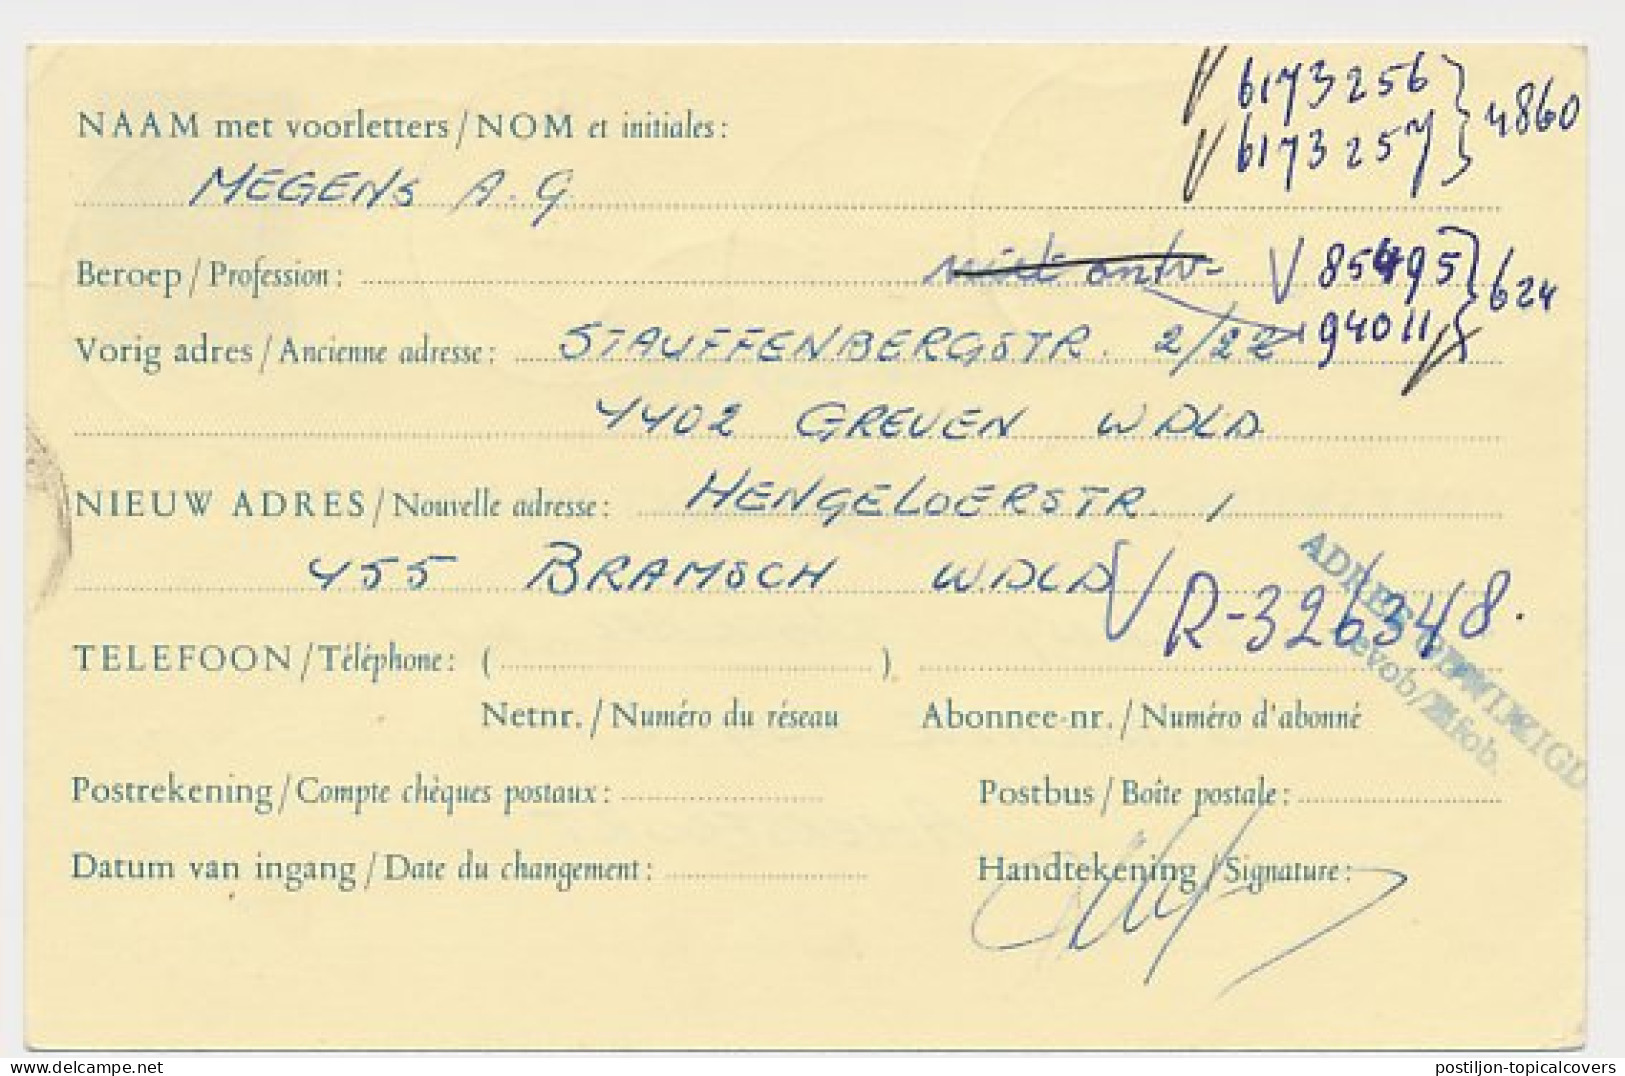 V 6173256 } 4860
V 6173257
NAAM met voorletters / NOM et initiales:
MEGENS A. G.
Beroep / Profession: niet antw- V 85495 } 624
Vorig adres / Ancienne adresse: STAUFFENBERGSTR. 2/22 94011 V
4402 GREVEN W DLD
NIEUW ADRES / Nouvelle adresse: HENGELOERSTR. 1
455 BRAMSCH W DLD V R-326348.
ADRES GEWIJZIGD
TELEFOON / Téléphone: ( )
Netnr. / Numéro du réseau Abonnee-nr. / Numéro d'abonné
Postrekening / Compte chèques postaux: Postbus / Boîte postale:
Datum van ingang / Date du changement: Handtekening / Signature:
delcampe.net
postiljon-topicalcovers